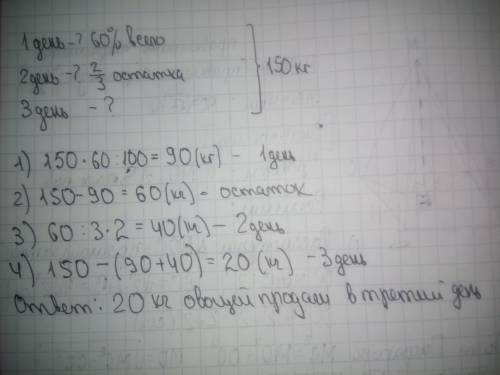 1 день - ? 60% всего
2 день - ? 2/3 остатка
3 день - ?
150 кг
1) 150 · 60 : 100 = 90 (кг) - 1 день
2) 150 - 90 = 60 (кг) - остаток
3) 60 : 3 · 2 = 40 (кг) - 2 день
4) 150 - (90 + 40) = 20 (кг) - 3 день
Ответ: 20 кг овощей продали в третий день